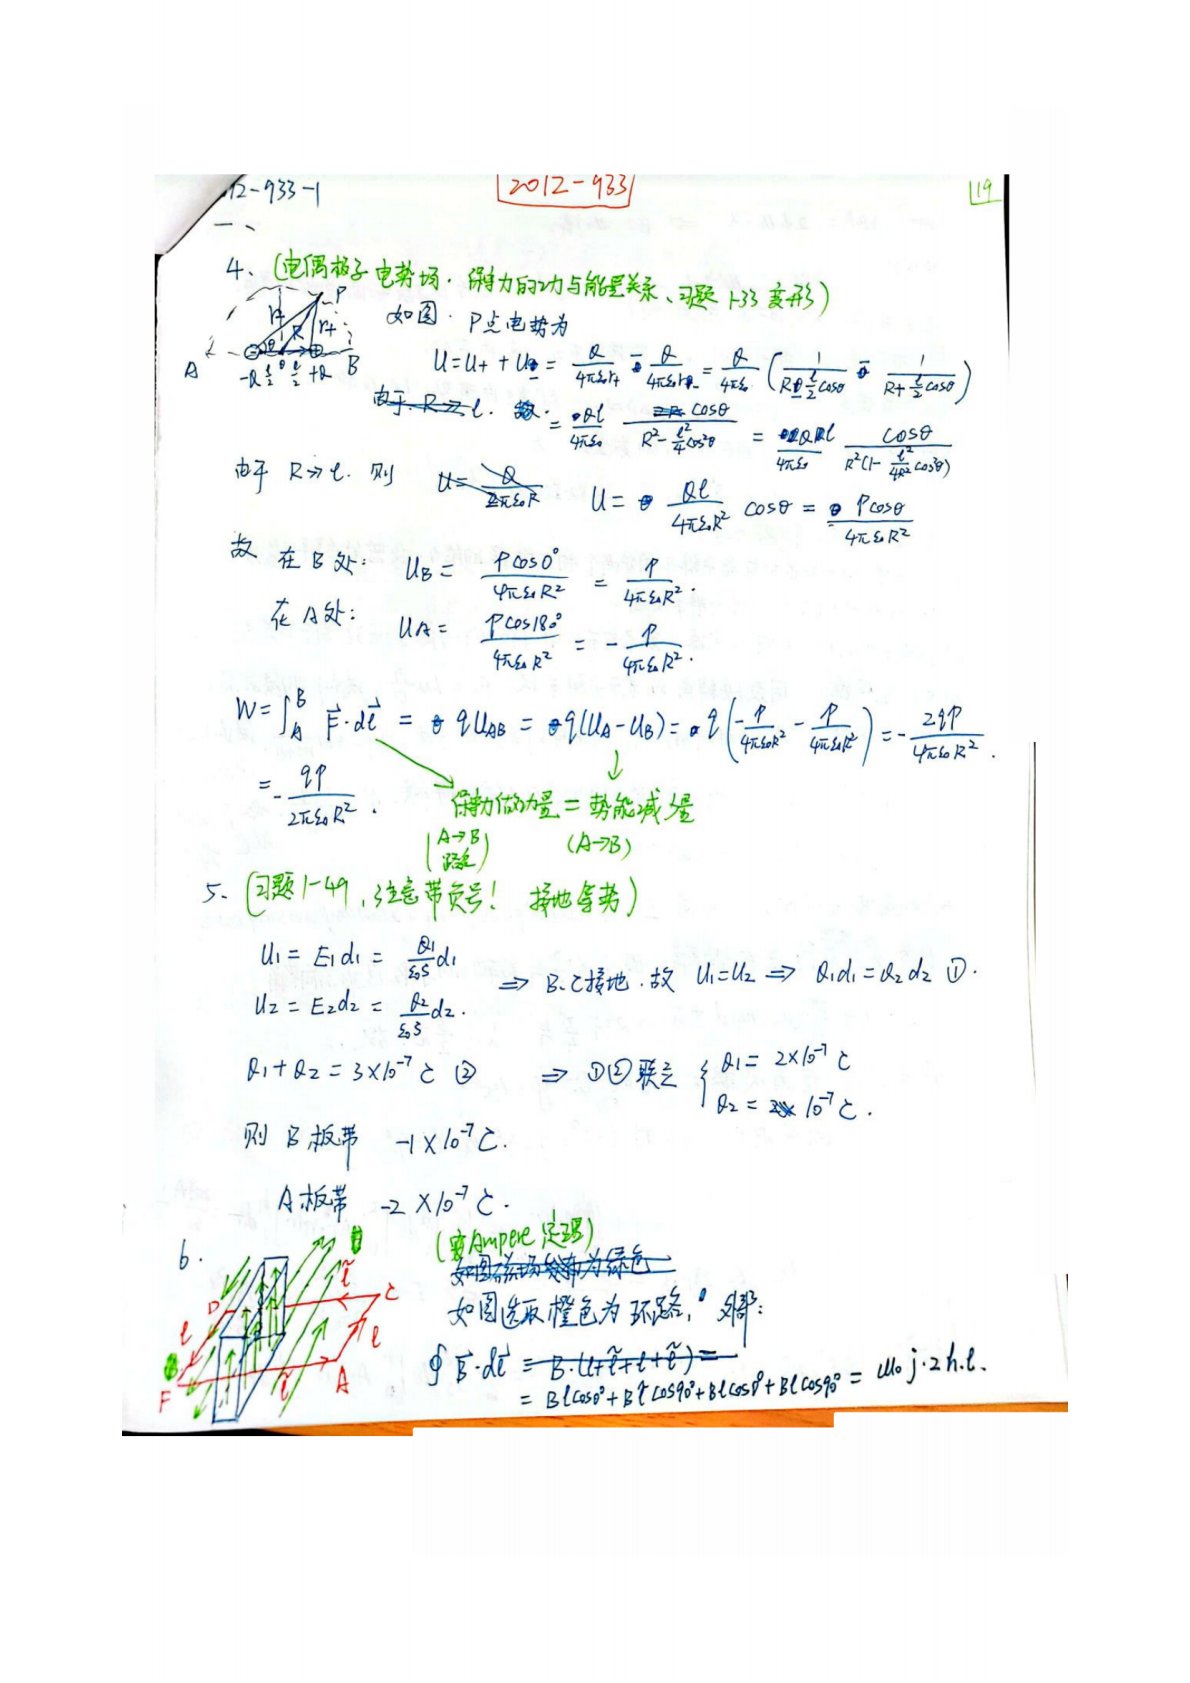 12-933-1
2012-933
19
一、
4、(电偶极子电势场.保守力的功与能量关系、习题1-33变形)
P
r- R r+
θ
A -Q l/2 0 l/2 +Q B
如图. P点电势为
U=U₊+U₋= Q/4πε₀r₊ - Q/4πε₀r₋ = Q/4πε₀ (1/(R-l/2 cosθ) - 1/(R+l/2 cosθ))
由于R≫l.
= Ql/4πε₀ cosθ/(R²-l²/4 cos²θ) = Ql/4πε₀ cosθ/(R²(1-l²/4R² cos²θ))
由于 R≫l. 则 U= Q/2πε₀R U= Ql/4πε₀R² cosθ = Pcosθ/4πε₀R²
故 在B处: U_B= Pcos0°/4πε₀R² = P/4πε₀R².
在A处: U_A= Pcos180°/4πε₀R² = - P/4πε₀R².
W=∫_A^B F⃗·dl⃗ = qU_AB = q(U_A-U_B)= q(-P/4πε₀R² - P/4πε₀R²)=- 2qP/4πε₀R².
=- qP/2πε₀R².
保守力做功量=势能减少量
(A→B路径) (A→B)
5、(习题1-49,注意带负号! 接地等势)
U₁= E₁d₁= Q₁/ε₀S d₁
U₂= E₂d₂= Q₂/ε₀S d₂.
⇒ B.C接地.故 U₁=U₂ ⇒ Q₁d₁=Q₂d₂ ①.
Q₁+Q₂=3×10⁻⁷C ② ⇒ ①②联立 { Q₁= 2×10⁻⁷C
Q₂= 10⁻⁷C.
则 B板带 -1×10⁻⁷C.
A板带 -2×10⁻⁷C.
6.
(Ampere定理)
如图磁场分布为绿色
如图选取橙色为环路, 外部:
D l̃ C
l l
B F l̃ A
∮B⃗·dl⃗ = B·(l+l̃+l+l̃)=
= Blcos0°+Bl̃cos90°+Blcos0°+Blcos90° = μ₀j·2h·l.